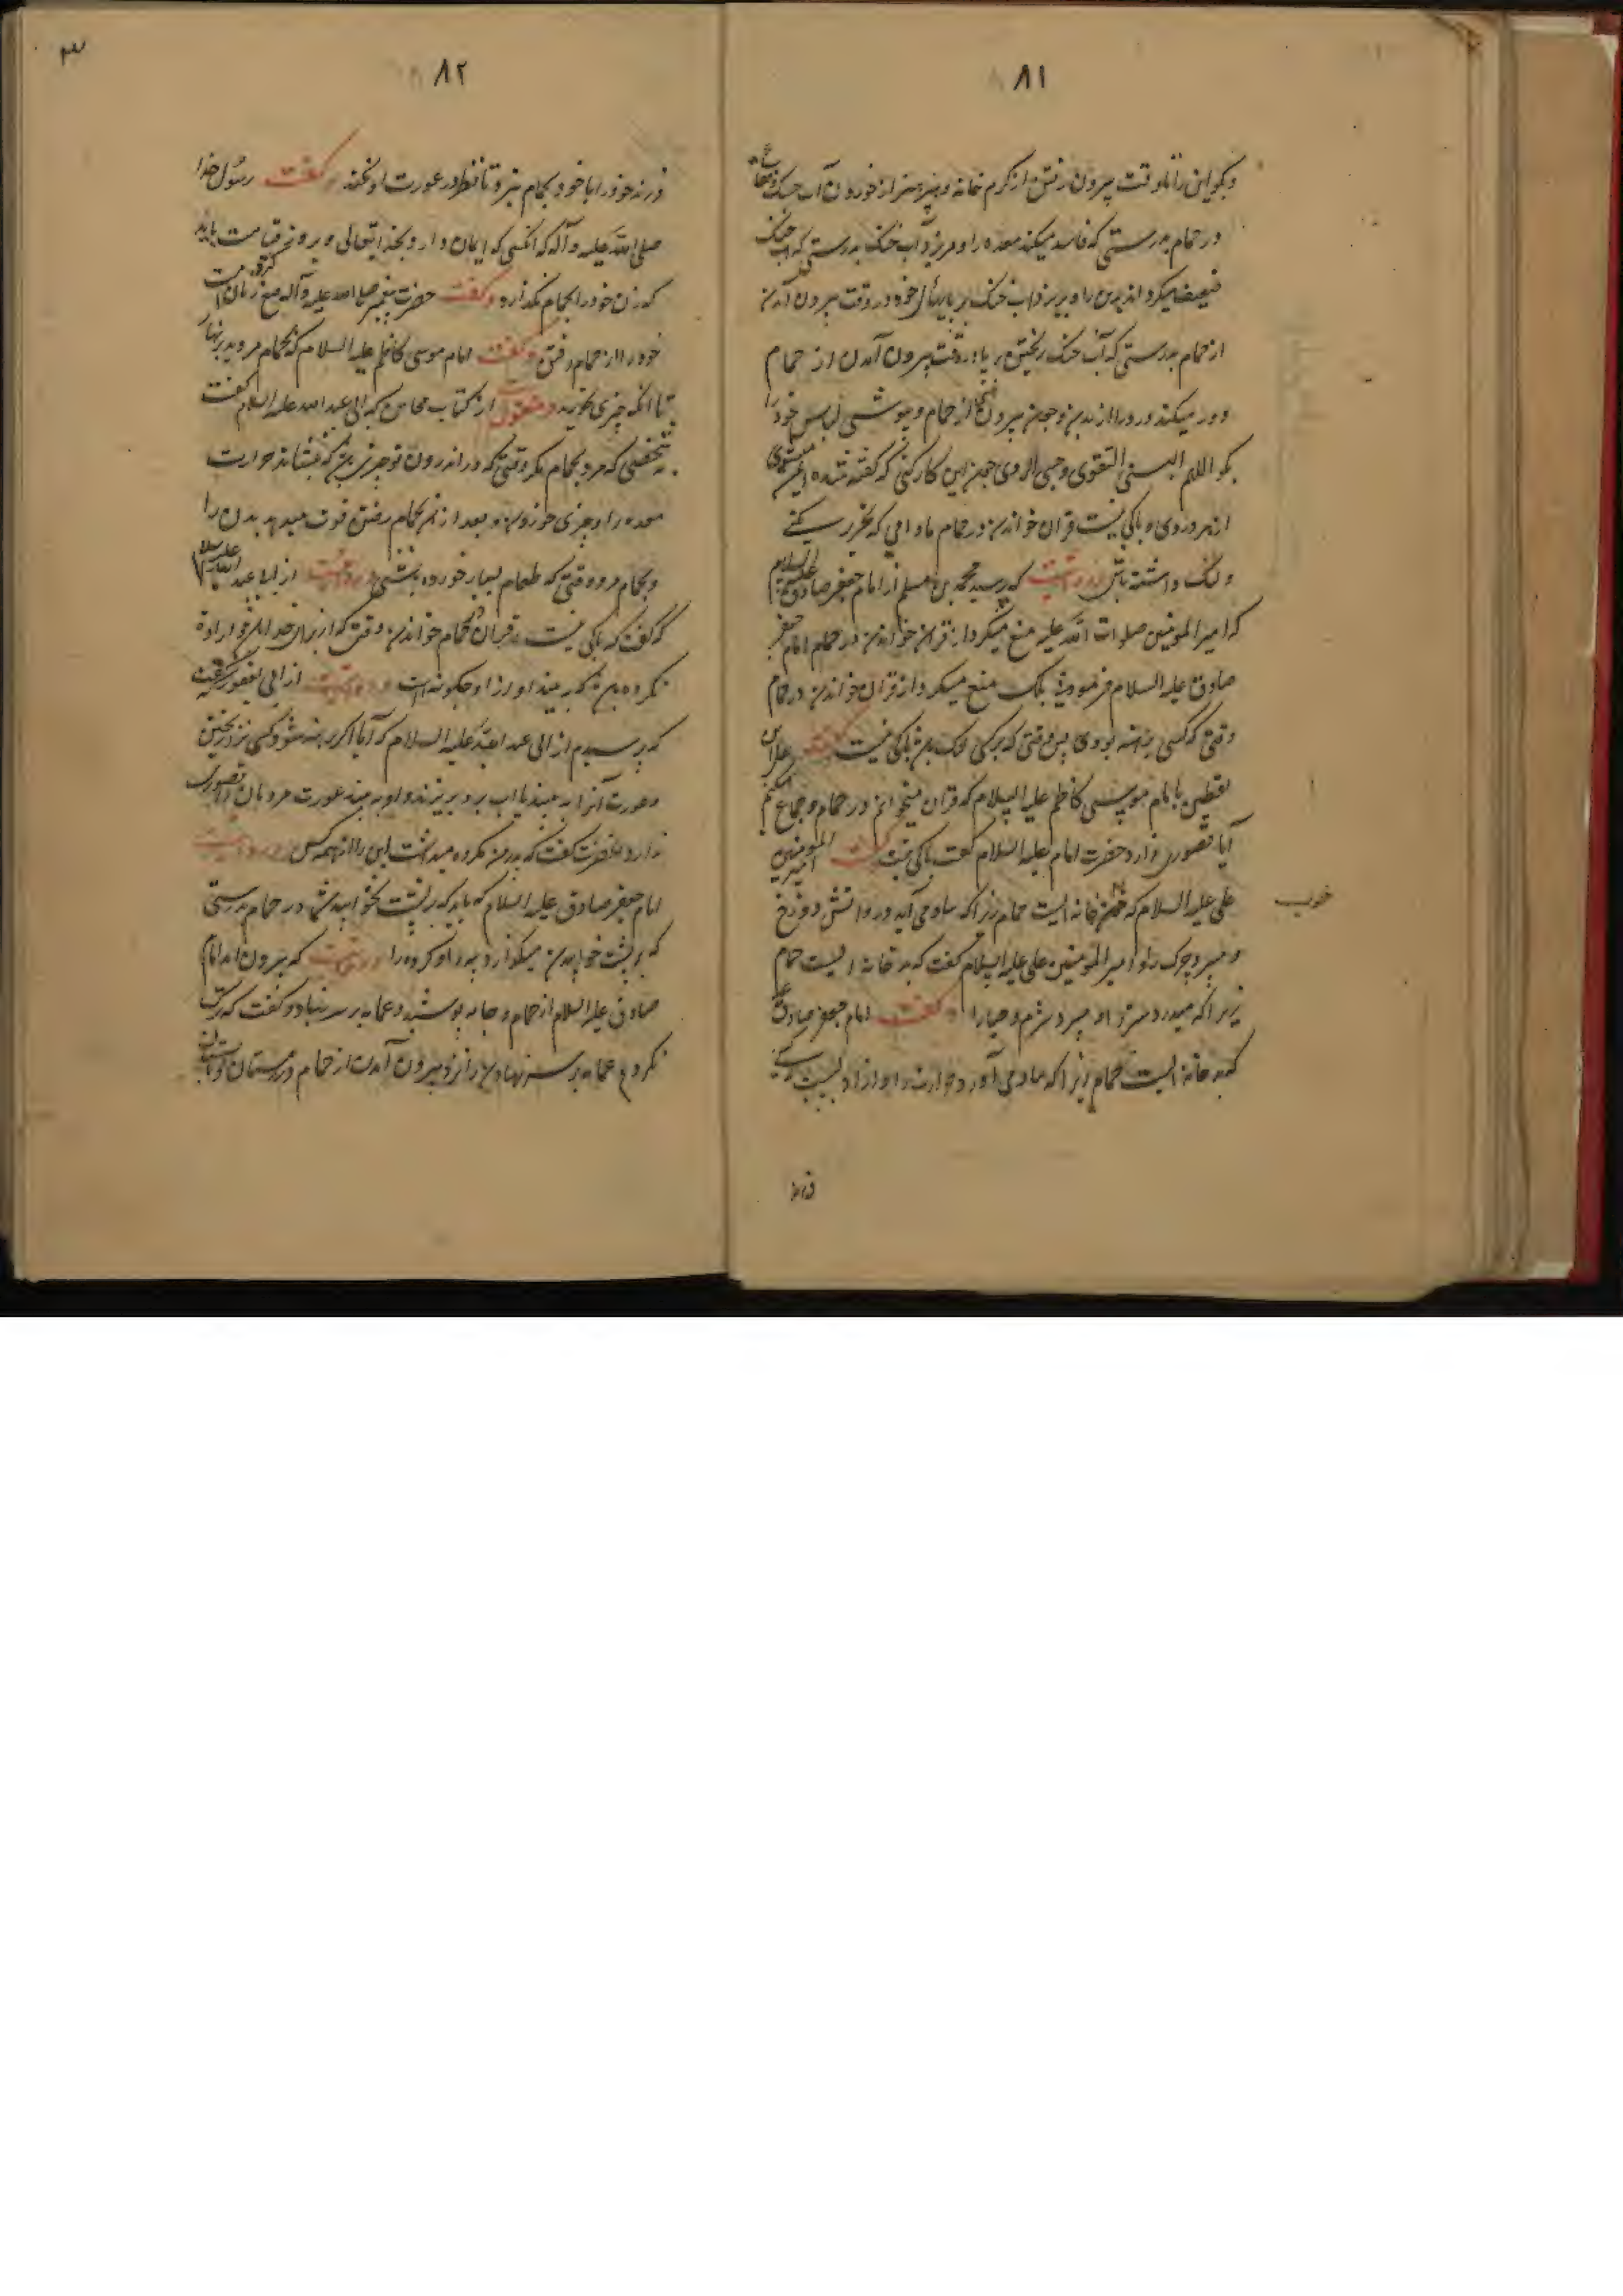 ۸۱
وبگو این را تا وقت بیرون رفتن از گرم خانه و بپرهیز از خوردن آب خنک و فقاع
در حمام بدرستی که فاسد میکند معده را و مریز آب خنک بدرستی که آب خنک
ضعیف میکرداند بدن را و بریز آب خنک بر پایهای خود در وقت بیرون آمدن
از حمام بدرستی که آب خنک ریختن بر پا در وقت بیرون آمدن از حمام
دور میکند درد را از بدن و چون بیرون آئی از حمام و بپوشی لباس خود را
بگو اللهم البسنی التقوی وجنبنی الردی چون این کار کنی که گفته شده ایمن میشوی
از هر دردی و باکی نیست قرآن خواندن در حمام مادامی که
و لنگ داشته باشی و روایتست که پرسید محمد بن مسلم از امام جعفر صادق علیه السلام
که امیر المومنین صلوات الله علیه منع میکرد از قرآن خواندن در حمام امام جعفر
صادق علیه السلام فرمود نه بلکه منع میکرد از قرآن خواندن در حمام
وقتی که کسی برهنه بودی پس وقتی که بر کسی لنگ باشد باکی نیست گفت علی بن
یقطین با امام موسی کاظم علیه السلام که قرآن میخوانم در حمام و جماع میکنم
آیا قصوری دارد حضرت امام علیه السلام گفت باکی نیست گفت امیر المومنین
علی علیه السلام که خوب خانه ایست حمام زیرا که بیاد می آید در او آتش دوزخ
و میبرد چرک را و امیر المومنین علی علیه السلام گفت که بد خانه ایست حمام
زیرا که میدرد ستر را و میبرد شرم و حیا را و گفت امام جعفر صادق ع
که بد خانه ایست حمام زیرا که
خوب
۸۲
۳
فرزند خود را با خود بحمام نبرد تا نظر در عورت او نکند و گفت رسول خدا
صلی الله علیه و آله که آنکسی که ایمان دارد بخدایتعالی و بروز قیامت باید
که زن خود را بحمام نگذارد و گفت حضرت پیغمبر صلی الله علیه و آله منع کرده است زنان امت
خود را از حمام رفتن و گفت امام موسی کاظم علیه السلام که بحمام مروید بر نهار
تا آنکه چیزی بخورید و منقول است از کتاب محاسن که ابی عبد الله علیه السلام گفت
شخصی که مرو بحمام مگر وقتی که در اندرون تو چیزی باشد که بنشاند حرارت
معده را و چیزی خوردن و بعد از آن بحمام رفتن قوت میدهد بدن را
و بحمام مرو وقتی که طعام بسیار خورده باشی و روایتست از ابی عبد الله علیه السلام
که گفت که باکی نیست قرآن در حمام خواندن وقتی که از برای خدا باشد و اراده
نکرده باشد که ببیند آواز او چگونه است و روایتست از ابی یعفور که گفت
که پرسیدم از ابی عبد الله علیه السلام که آیا اگر برهنه شود کسی نزد ریختن
و عورت آنرا به بیند یا آب برو بریزند و او به بیند عورت مردمان آیا قصوری
دارد حضرت گفت که پدر من مکروه میدانست این را از همه کس و روایتست
امام جعفر صادق علیه السلام که باید که بر پشت نخوابید شما در حمام بدرستی
که بر پشت خوابیدن میگدازد پیه را و گرده را و روایتست که بیرون آمد امام
صادق علیه السلام از حمام و جامه پوشید و عمامه بر سر نهاد و گفت که ترک
نکردم عمامه بر سر نهادن را نزد بیرون آمدن از حمام در زمستان و تابستان